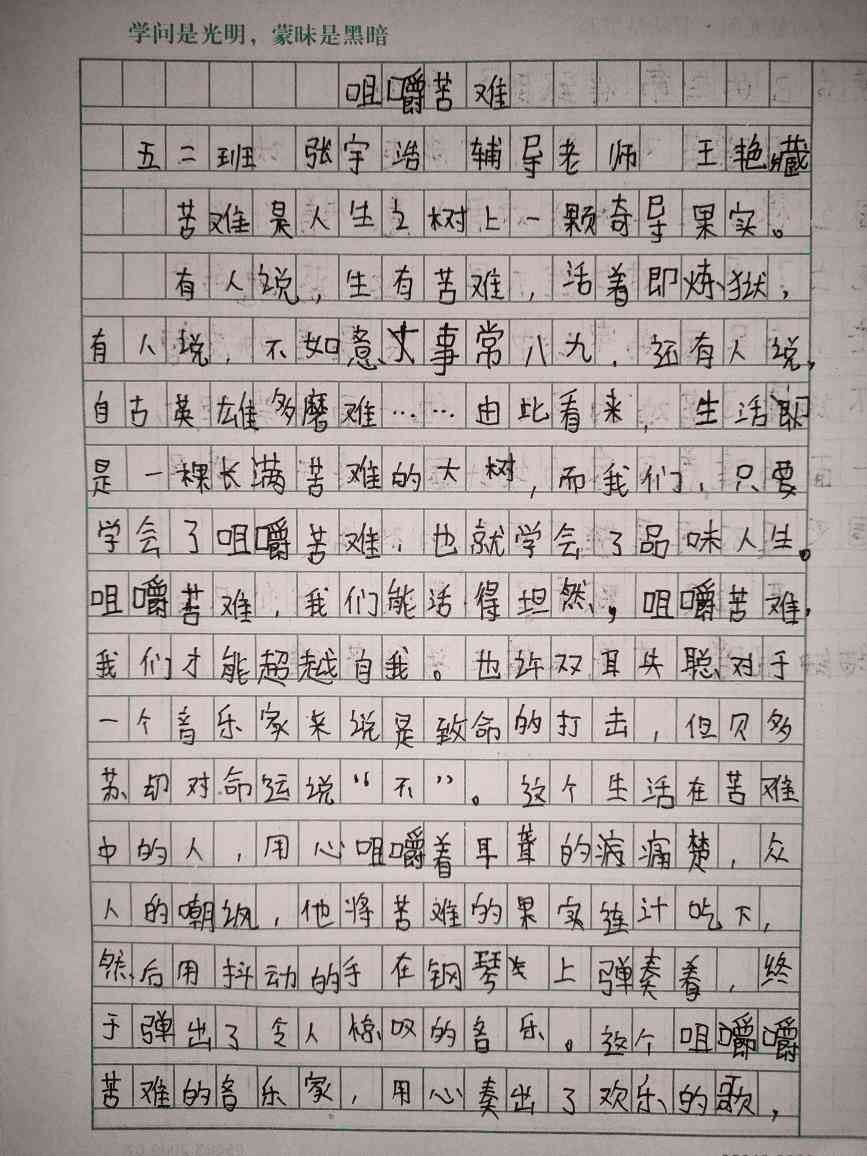 学问是光明，蒙昧是黑暗
咀嚼苦难
五二班 张宇浩 辅导老师 王艳藏
苦难是人生之树上一颗奇导果实。
有人说，生有苦难，活着即炼狱，
有人说，不如意事常八九．还有人说，
自古英雄多磨难……由此看来，生活即
是一棵长满苦难的大树，而我们，只要
学会了咀嚼苦难，也就学会了品味人生。
咀嚼苦难，我们能活得坦然，咀嚼苦难，
我们才能超越自我。也许双耳失聪对于
一个音乐家来说是致命的打击，但贝多
苏却对命运说“不”。这个生活在苦难
中的人，用心咀嚼着耳聋的病痛楚，众
人的嘲讽，他将苦难的果实连汁吃下，
然后用抖动的手在钢琴上弹奏着，终
于弹出了令人惊叹的音乐。这个咀嚼嚼
苦难的音乐家，用心奏出了欢乐的歌，